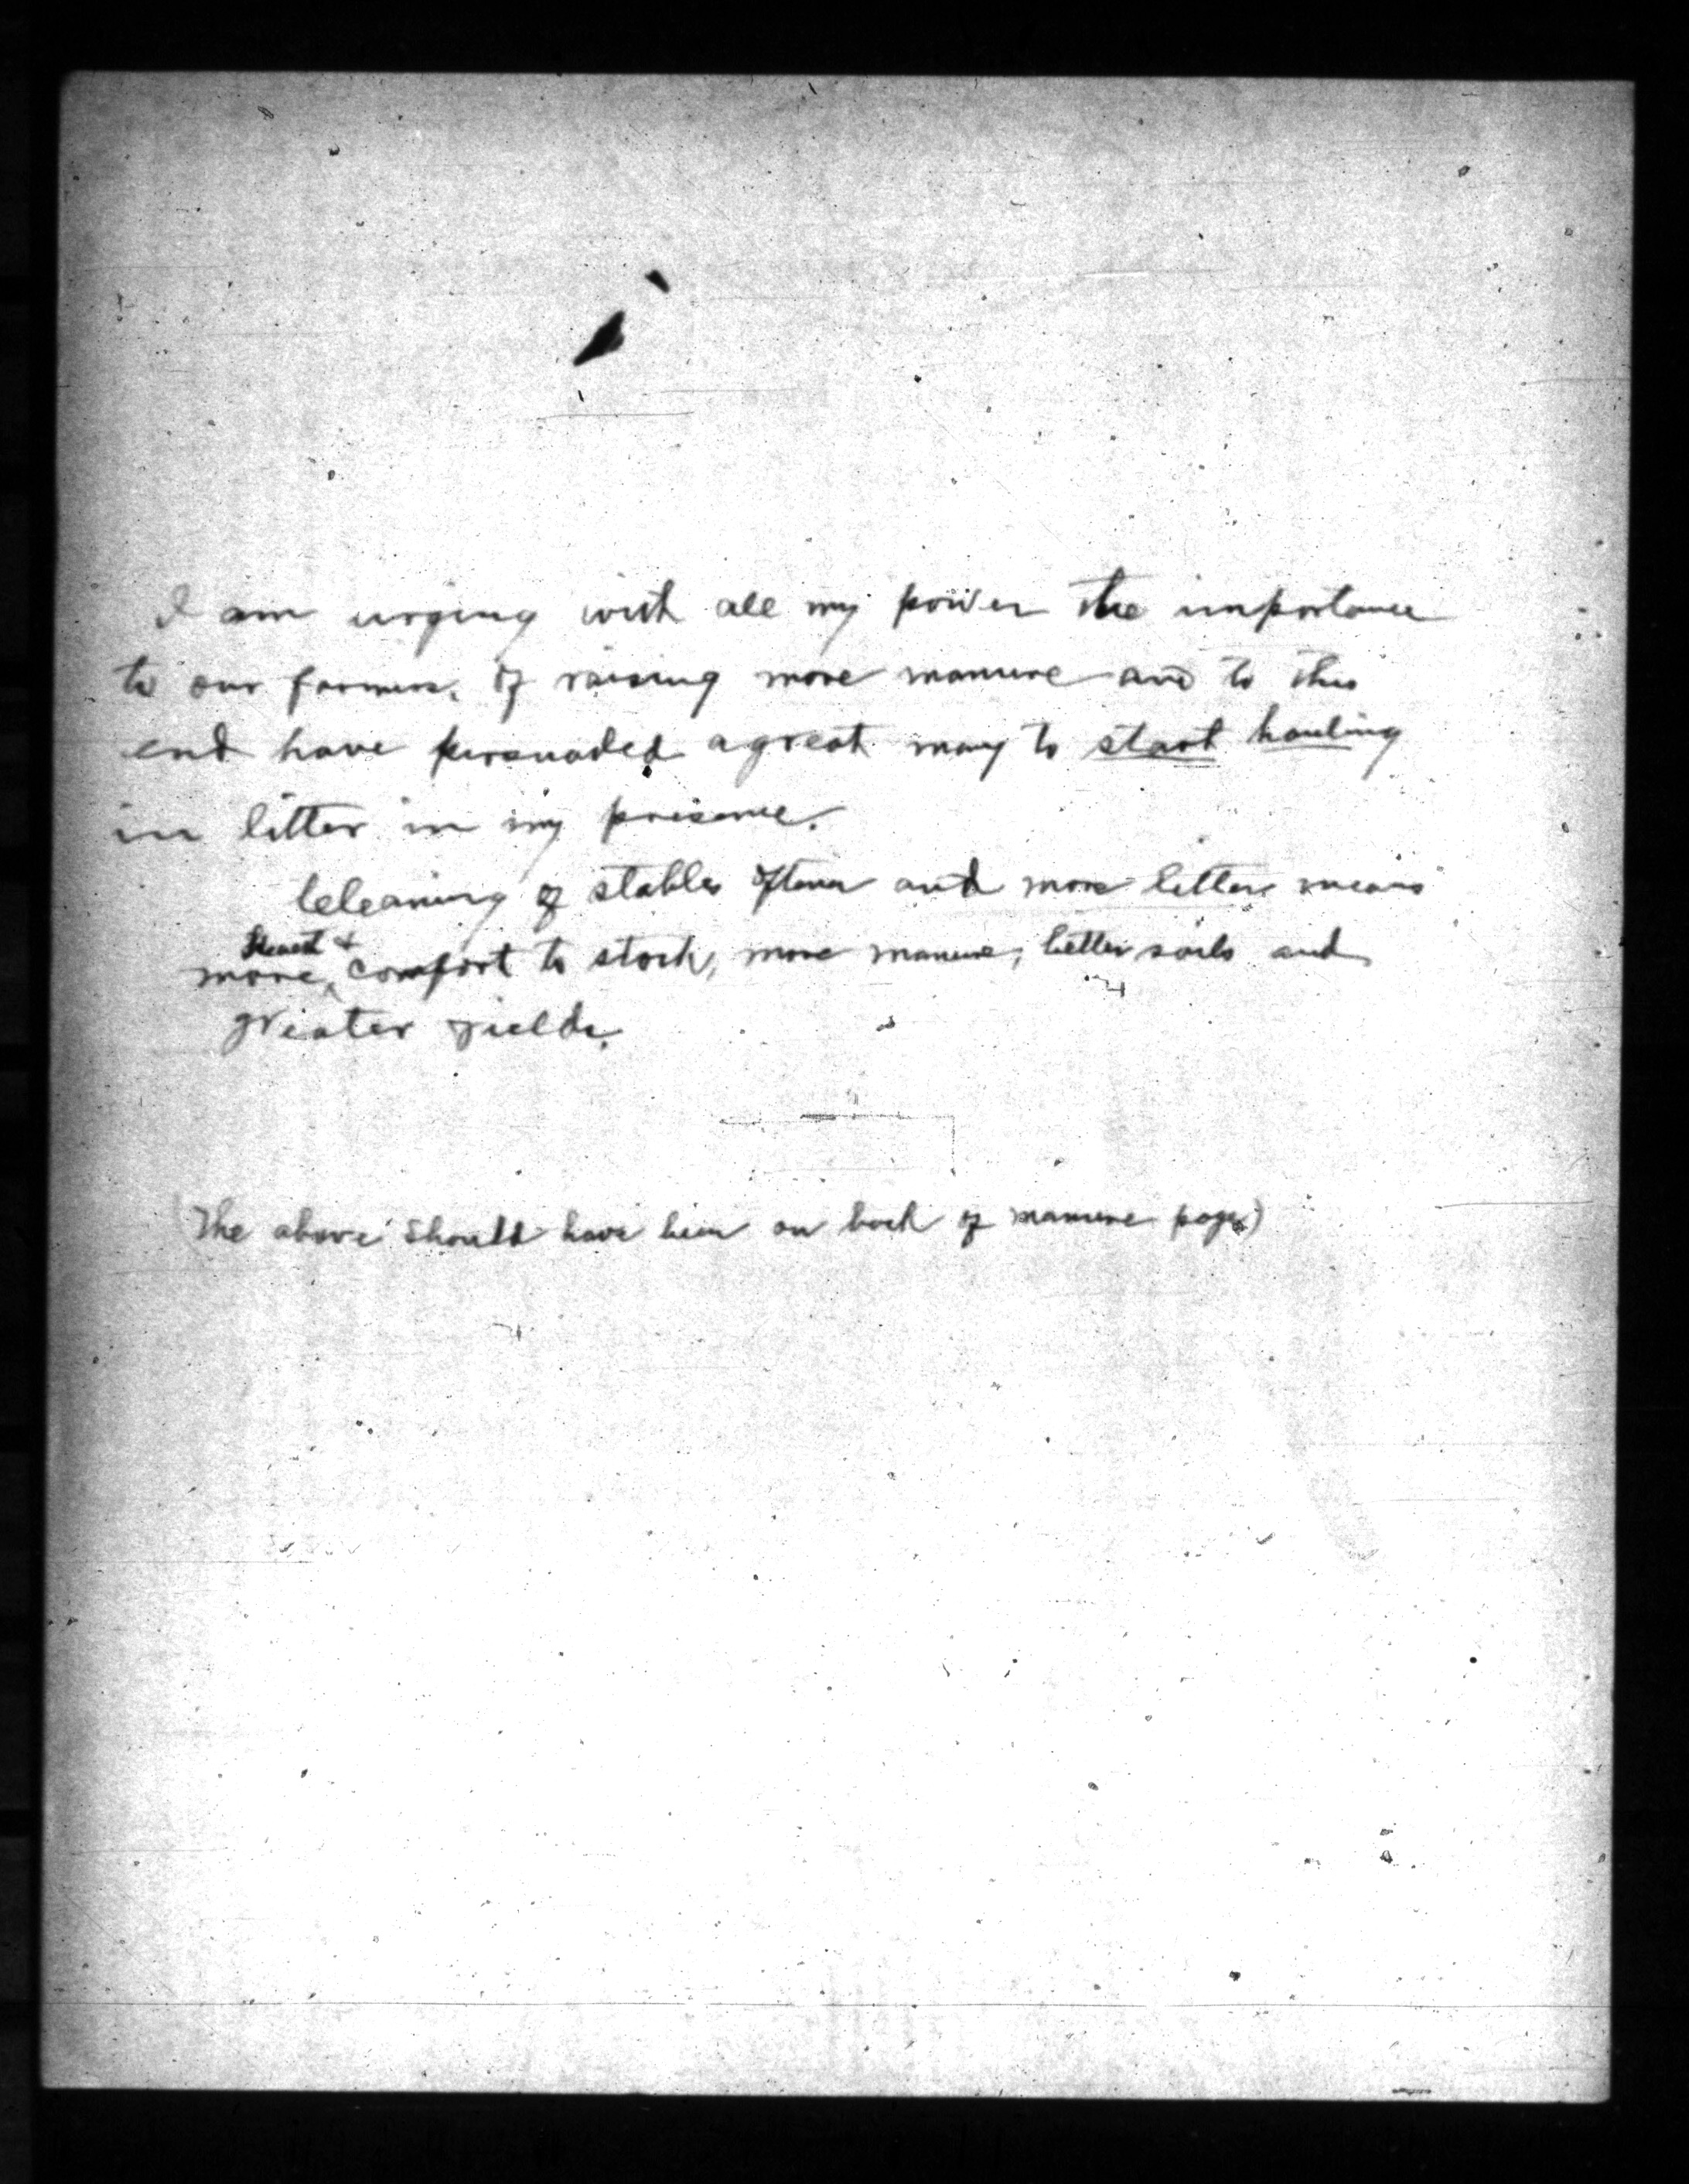 I am urging with all my power the importance
to our farmers, of raising more manure and to this
end have persuaded a great many to start hauling
in litter in my presence.
Cleaning of stables oftener and more litter means
&
more comfort to stock, more manure, better soils and
greater yields.
(The above should have been on back of manure page)